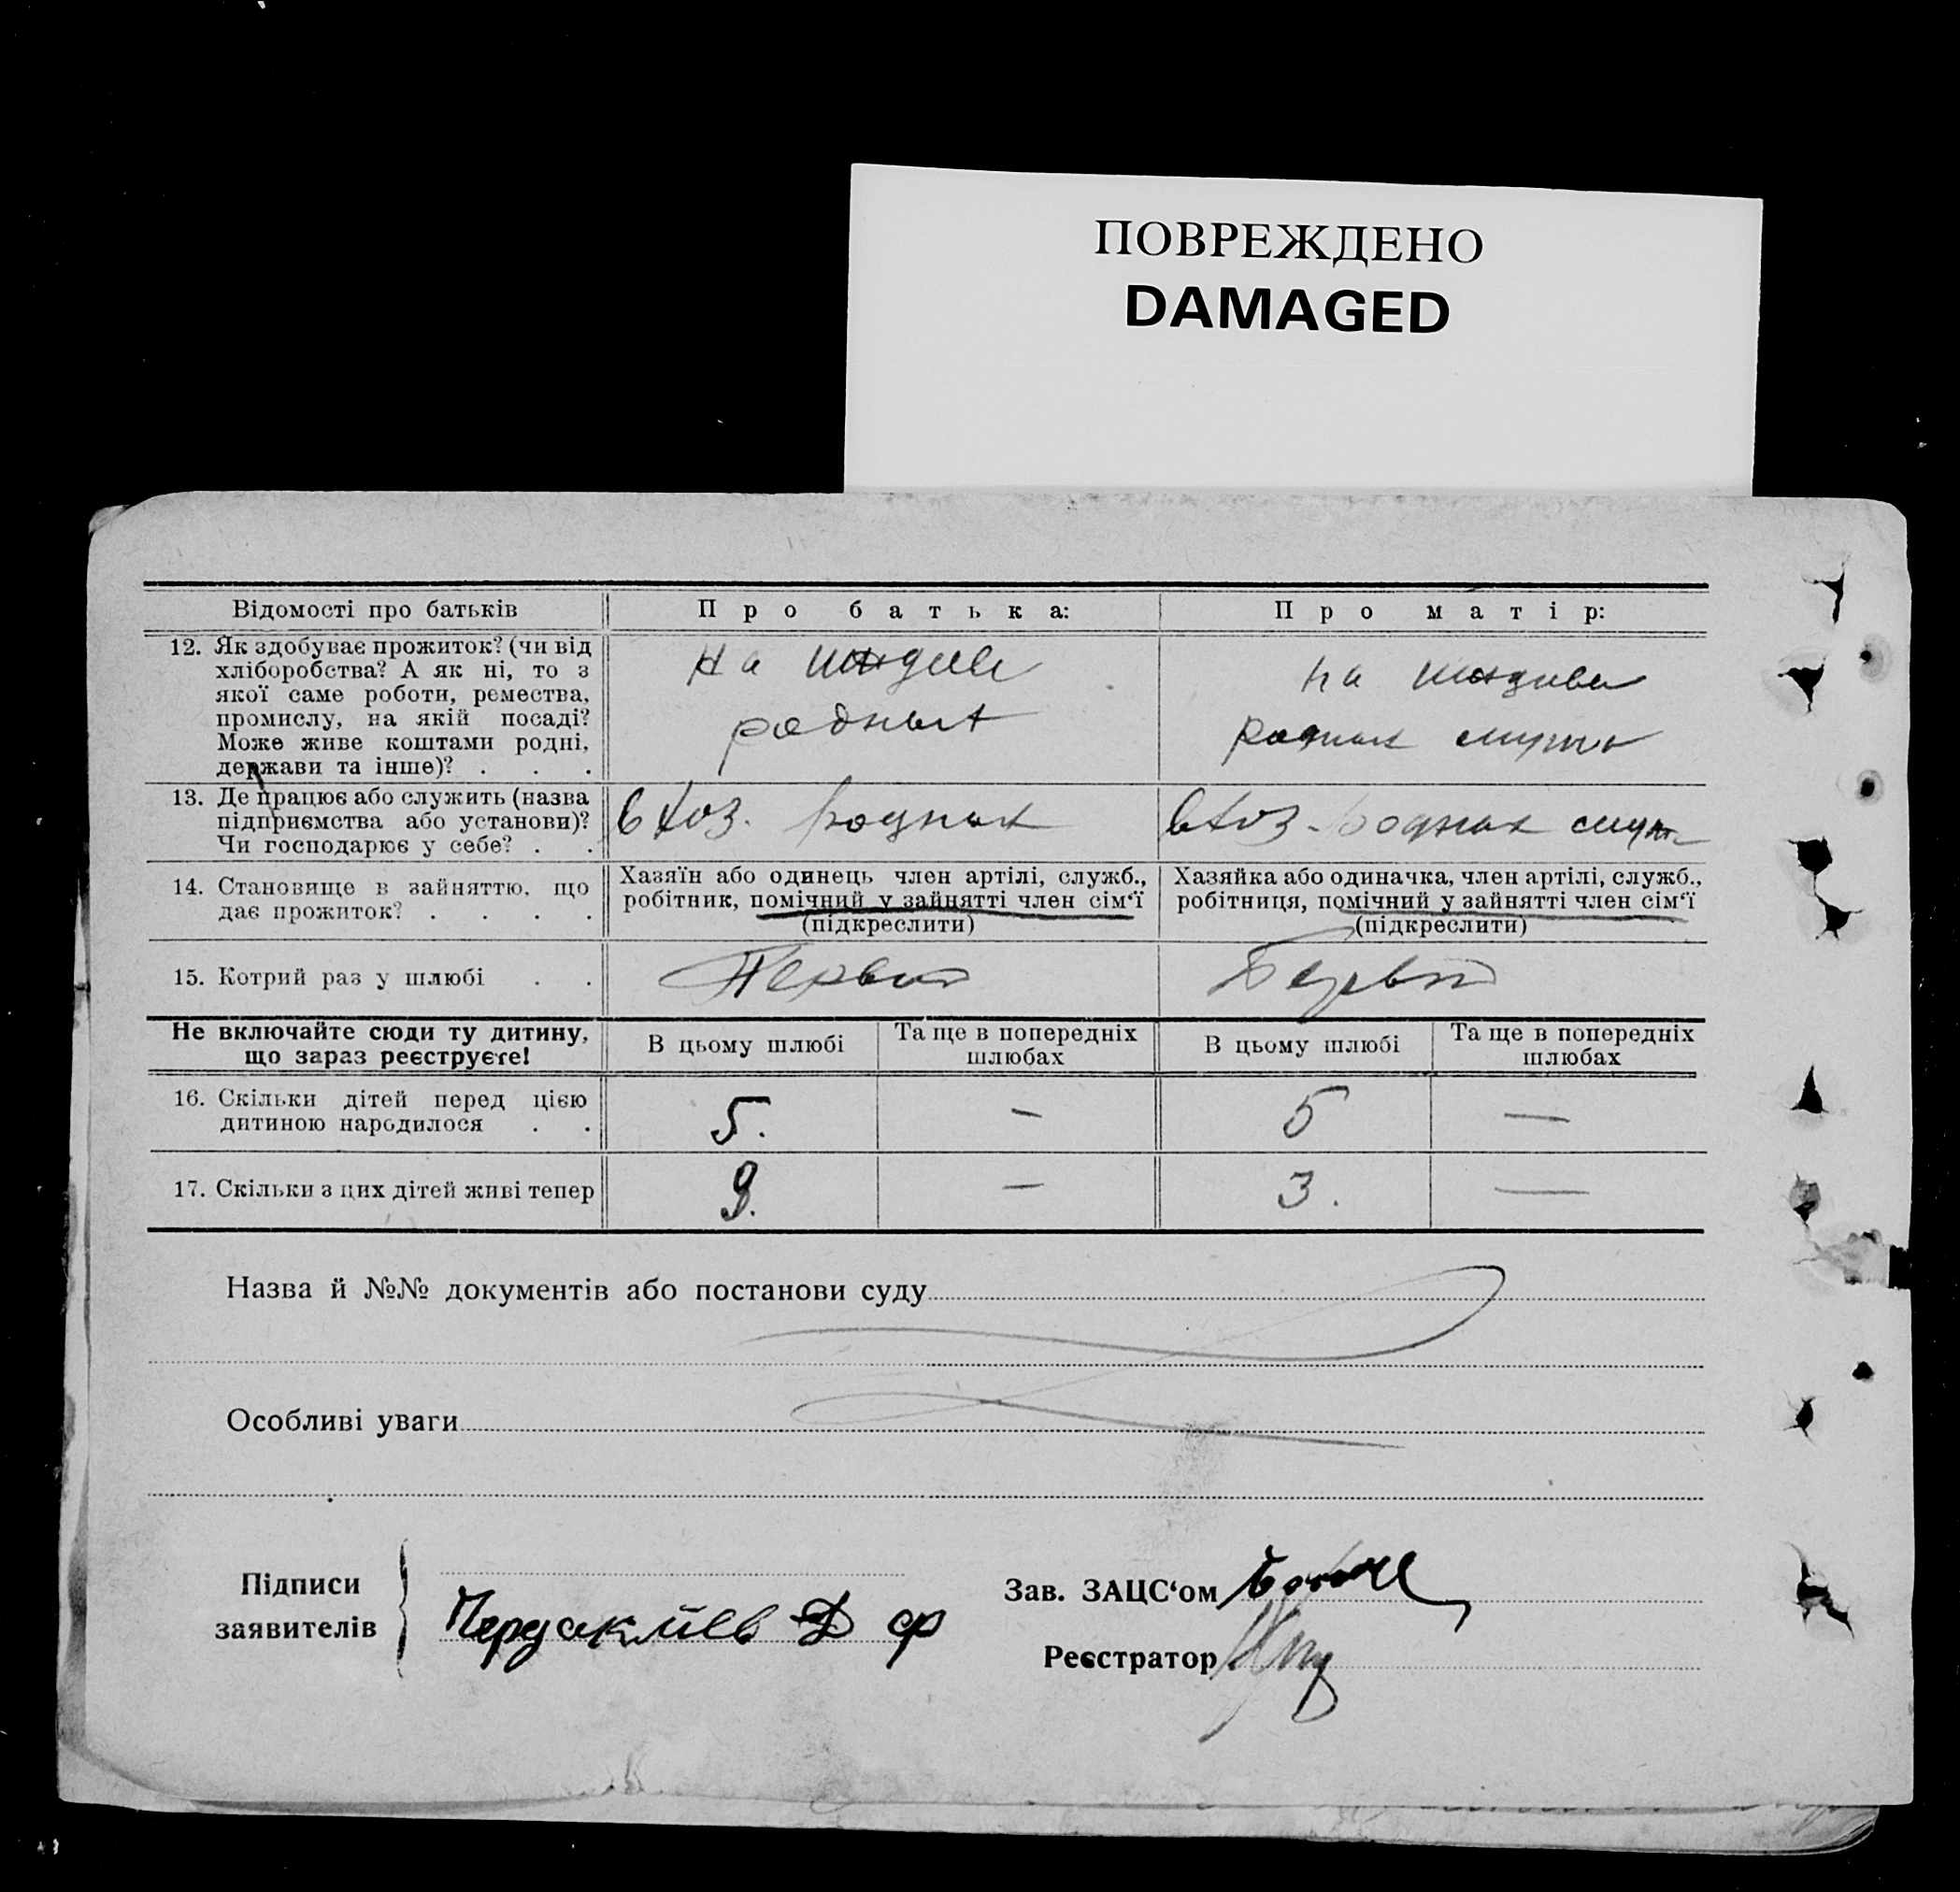 ПОВРЕЖДЕНО
DAMAGED
Відомості про батьків
Про батька:
Про матір:
12. Як здобуває прожиток? (чи від
хліборобства? А як ні, то з
якої саме роботи, ремества,
промислу, на якій посаді?
Може живе коштами родні,
держави та інше)? . . .
На
родных
на
родных
13. Де працює або служить (назва
підприємства або установи)?
Чи господарює у себе? . .
в хоз. родных
в хоз. родных
14. Становище в зайняттю, що
дає прожиток? . . . .
Хазяїн або одинець член артілі, служб.,
робітник, помічний у зайнятті член сім'ї
(підкреслити)
Хазяйка або одиначка, член артілі, служб.,
робітниця, помічний у зайнятті член сім'ї
(підкреслити)
15. Котрий раз у шлюбі . .
Первый
Первый
Не включайте сюди ту дитину,
що зараз реєструєте!
В цьому шлюбі
Та ще в попередніх
шлюбах
В цьому шлюбі
Та ще в попередніх
шлюбах
16. Скільки дітей перед цією
дитиною народилося . .
5.
—
5
—
17. Скільки з цих дітей живі тепер
3.
—
3.
—
Назва й №№ документів або постанови суду
Особливі уваги
Підписи
заявителів
Д ф
Зав. ЗАЦС'ом
Реєстратор